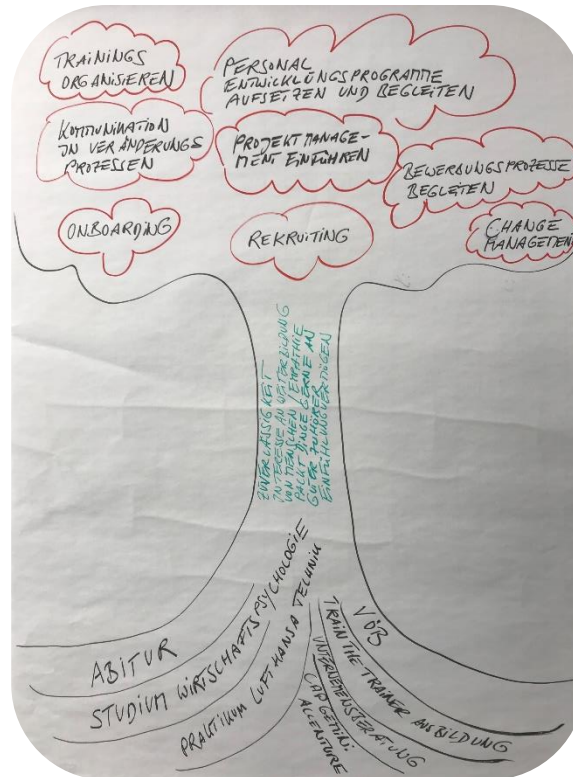 TRAININGS
ORGANISIEREN
PERSONAL
ENTWICKLUNGSPROGRAMME
AUFSETZEN UND BEGLEITEN
KOMMUNIKATION
IN VERÄNDERUNGS
PROZESSEN
PROJEKTMANAGE-
MENT EINFÜHREN
BEWERBUNGSPROZESSE
BEGLEITEN
ONBOARDING
REKRUITING
CHANGE
MANAGEMENT
ZUVERLÄSSIGKEIT
INTERESSE AN WEITERBILDUNG
VON MENSCHEN / EMPATHIE
PACKT DINGE GERNE AN
GUTER ZUHÖRER
EINFÜHLUNGSVERMÖGEN
ABITUR
STUDIUM WIRTSCHAFTSPSYCHOLOGIE
PRAKTIKUM LUFTHANSA TECHNIK
VÖB
TRAIN THE TRAINER AUSBILDUNG
UNTERNEMENSBERATUNG
CAPGEMINI
ACCENTURE